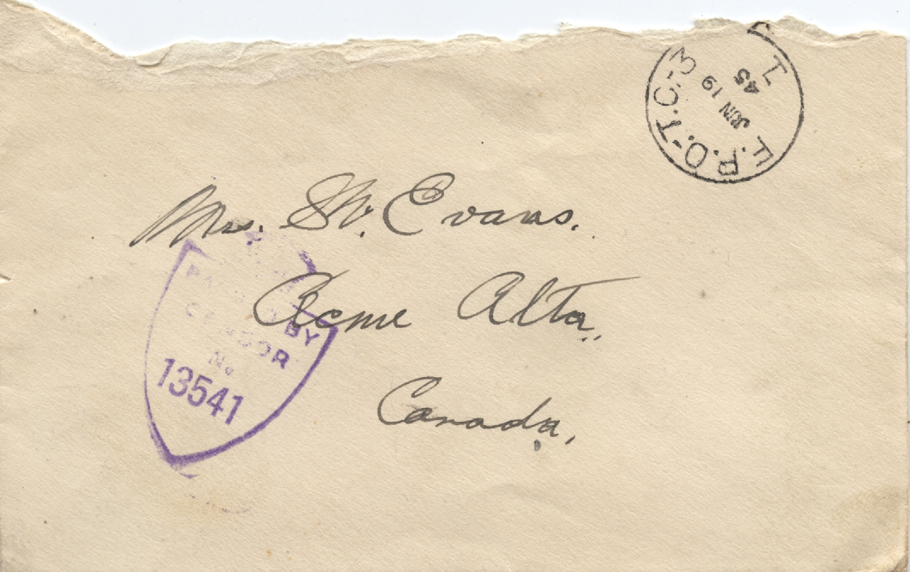 F.P.O.-T.C-3
JUN 19
45
Mrs. W. Evans.
Acme Alta.
Canada.
BY
No
13541